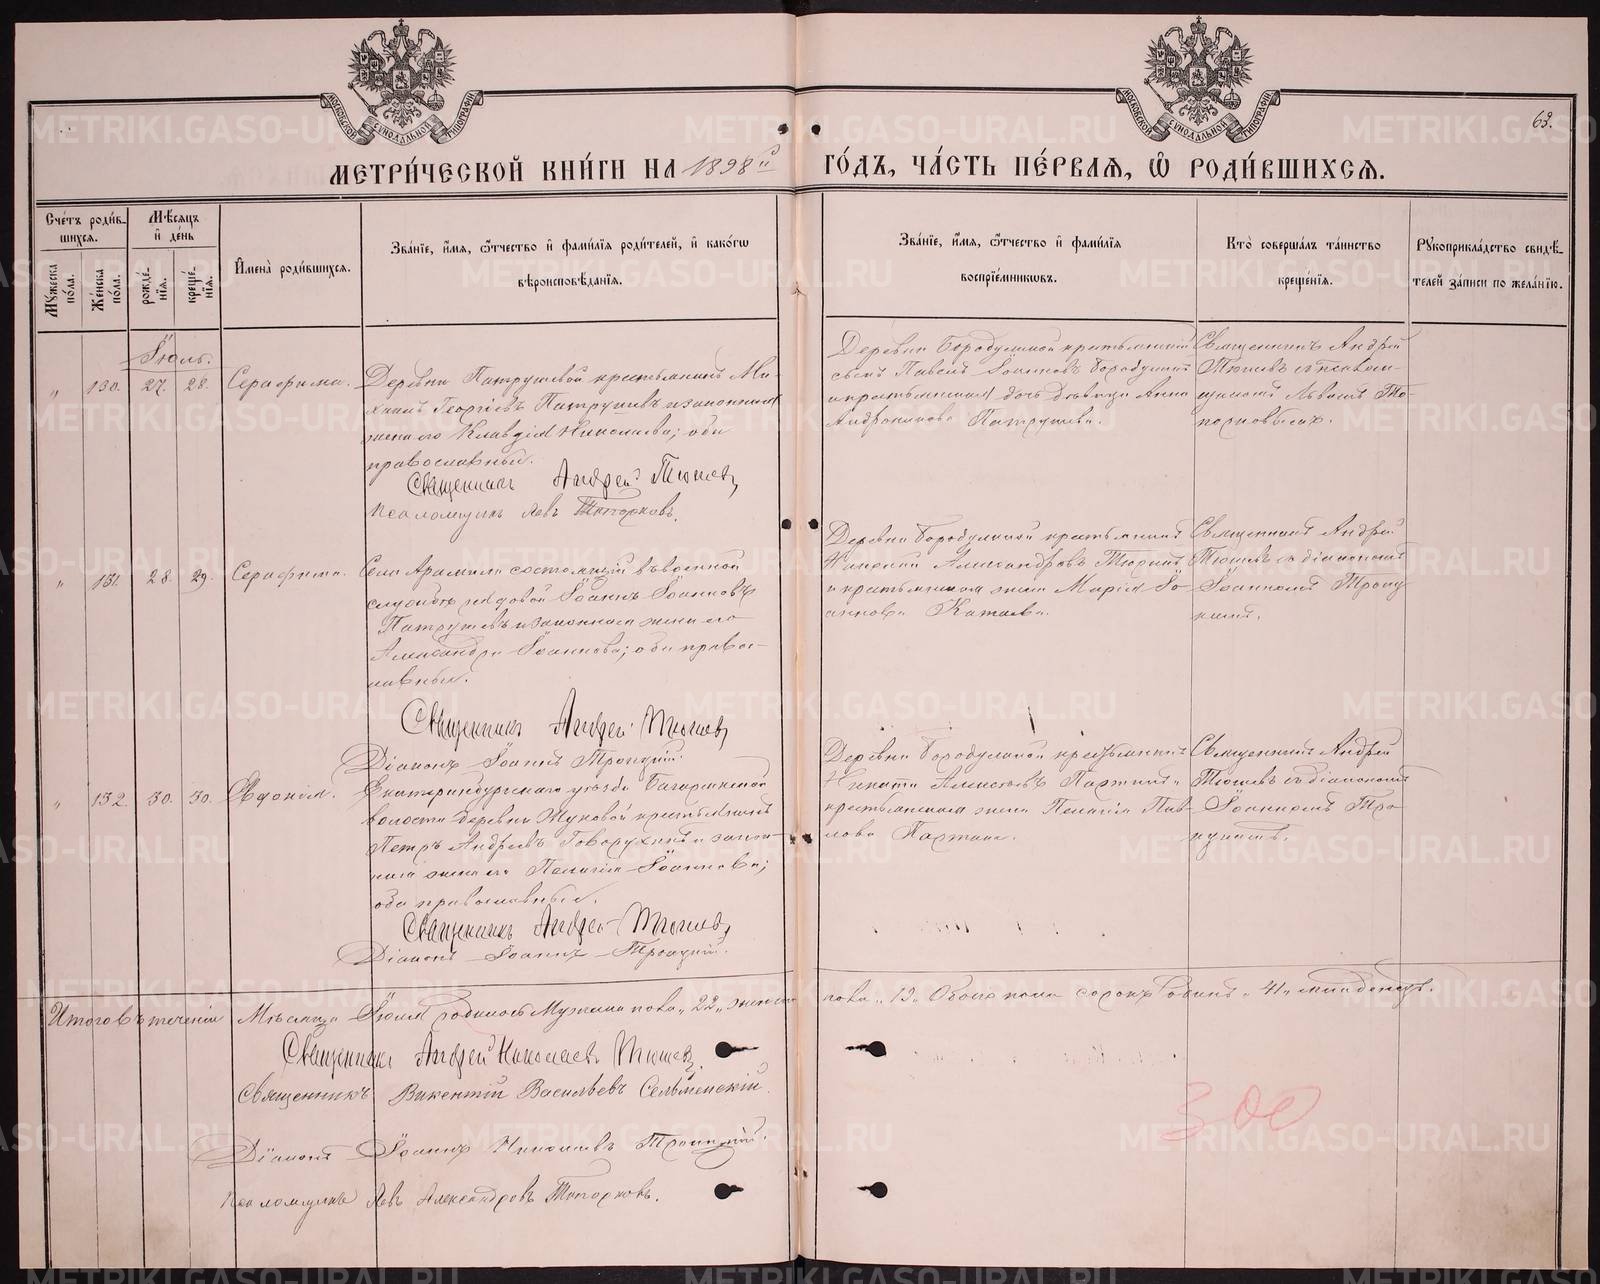 МОСКОВСКОЙ СѴНОДАЛЬНОЙ ТИПОГРАФІИ
МОСКОВСКОЙ СѴНОДАЛЬНОЙ ТИПОГРАФІИ
63.
МЕТРИ́ЧЕСКОЙ КНИ́ГИ НА 1898й ГО́ДЪ, ЧА́СТЬ ПЕ́РВАѦ, Ѡ҆ РОДИ́ВШИХСѦ.
Сче́тъ роди́в-
шихся.
Мꙋжеска по́ла.
Же́нска по́ла.
Мѣ́сяцъ
и҆ де́нь
рожде́-
нїѧ.
креще́-
нїѧ.
И҆мена̀ роди́вшихся.
Зва́нїе, и҆́мя, ѻ҆́тчество и҆ фами́лїѧ роди́телей, и҆ како́гѡ
вѣроисповѣ́данїѧ.
Зва́нїе, и҆́мя, ѻ҆́тчество и҆ фами́лїѧ
воспрїе́мниковъ.
Кто̀ соверша́лъ та́инство
креще́нїѧ.
Рꙋкоприкла́дство свидѣ́-
телей за́писи по жела́нїю.
Іюль.
" 130. 27. 28. Серафима.
Деревни Патрушевой крестьянинъ Ми-
хаилъ Георгіевъ Патрушевъ и законная
жена его Клавдія Николаева; оба
православные.
Священникъ Андрей Тюшев
Псаломщикъ Левъ Топорковъ.
Деревни Бородулиной крестьянскій
сынъ Павелъ Іоанновъ Бородулинъ
и крестьянская дочь девица Анна
Андроникова Патрушева.
Священникъ Андрей
Тюшевъ съ псалом-
щикомъ Львомъ То-
порковымъ.
" 131. 28. 29. Серафима.
Села Арамили состоящій въ военной
службѣ рядовой Іоаннъ Іоанновъ
Патрушевъ и законная жена его
Александра Іоаннова; оба право-
славные.
Священникъ Андрей Тюшев
Діаконъ Іоаннъ Троицкій.
Деревни Бородулиной крестьянинъ
Александровъ
и крестьянская жена Марія Іо-
аннова Катаева.
Священникъ Андрей
Тюшевъ съ діакономъ
Іоанномъ Троиц-
кимъ.
" 132. 30. 30. Евдокія.
Екатеринбургскаго уѣзда
волости деревни Жуковой крестьянинъ
Петръ Андреевъ Говорухинъ и закон-
ная жена его Пелагія Іоаннова;
оба православные.
Священникъ Андрей Тюшев
Діаконъ Іоаннъ Троицкій.
Деревни Бородулиной крестьянинъ
Никита Алексѣевъ
крестьянская жена Пелагія Пав-
лова
Священникъ Андрей
Тюшевъ съ діакономъ
Іоанномъ Тро-
ицкимъ.
Итого въ теченіи Мѣсяца Іюля родилось Мужска пола „22„ женска пола „19„ Обоего пола сорокъ одинъ „41„ младенецъ.
Священникъ Андрей Николаевъ Тюшев
Священникъ Викентій Васильевъ Сельменскій.
Діаконъ Іоаннъ Троицкій.
Псаломщикъ Левъ Александровъ Топорковъ.
300
METRIKI.GASO-URAL.RU